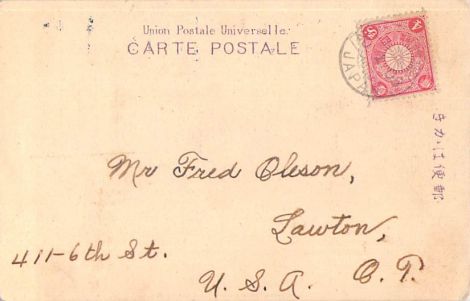 Union Postale Universelle.
CARTE POSTALE
JAPAN
きかは便郵
Mr Fred Oleson,
Lawton,
411-6th St.
U. S. A. O. T.